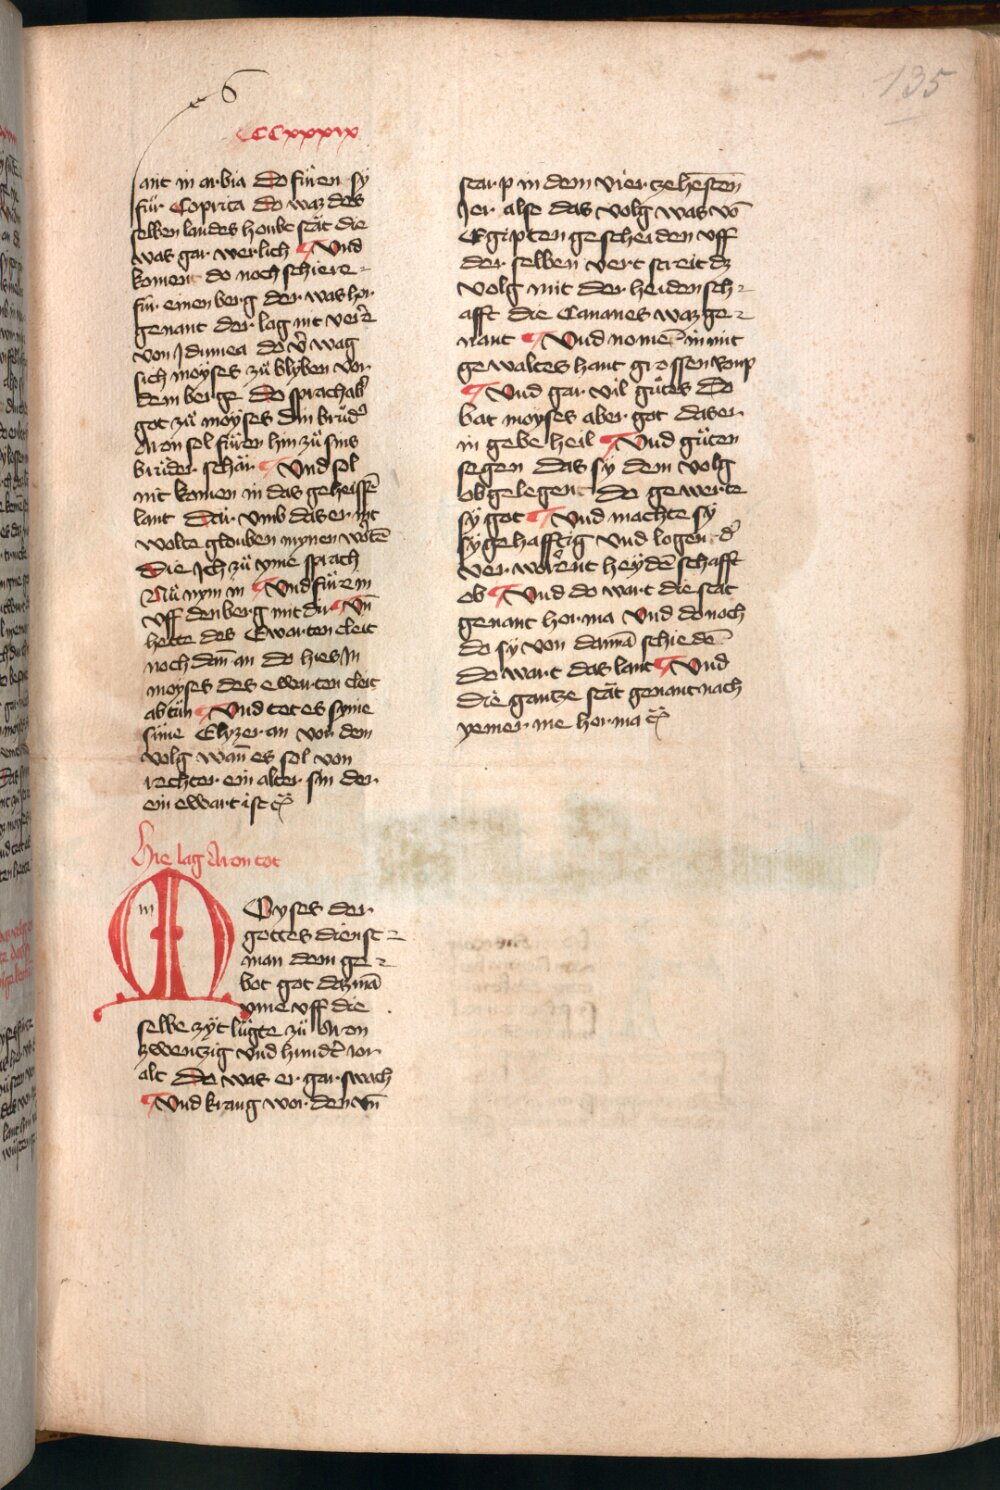 6
135
CCxxxix
lant in arbia Do fůren sy
für Coprita do waz des
selben landes houbt stat die
was gar werlich Vnd
koment do noch schiere
für einen berg der was hor
genant der lag nit verre
von Jdumea do v̄ wag
sich moyses zů blyben vor
dem berge Do sprach ab̾
got zů moyses din brůd̾
Aron sol fůren hin zů sins
brůder schar Vnd sol
nit komen in das geheissē
lant Dar vmb das er nit
wolte glouben mynen wortē
Die Jch zů yme sprach
Nů nym in Vnd fůre in
vff den berg mit dir Vn̄
hette des Ewarten cleit
noch dan̄ an do hies in
moyses des ewarten cleit
abtůn Vnd tet es syme
sune Elyzer an vor dem
volg wan̄ es sol von
rechter ein alter sin der
ein ewart ist
Hie lag Aron tot
m
MOyses der
gottes dienst
man dem ge
bot got daz mā
yme vff die
selbe zyt lůgte zů Aron
zwentzig vnd hundt̾ ior
alt Do was er gar swach
Vnd krang worden vn̄
starp in dem vierzehesten
Jor alse das volg was vō
Egipten gescheiden vff
der selben vert streit dz
volg mit der heidensch
afft die Cananes waz ge
nant Vnd nomē in mit
gewaltes hant grossen roup
Vnd gar vil gůtes Do
bat moyses aber got das er
in gebe heil Vnd gůten
segen das sy dem volg
obgelegent do gewerte
sy got Vnd machte sy
sygehafftig vnd logen d̾
ver worent heydēschafft
ob Vnd do wart die stat
genant horma Vnd do noch
do sy von dannā schiedē
do wart das lant Vnd
die gantze stat genant nach
yemer me horma